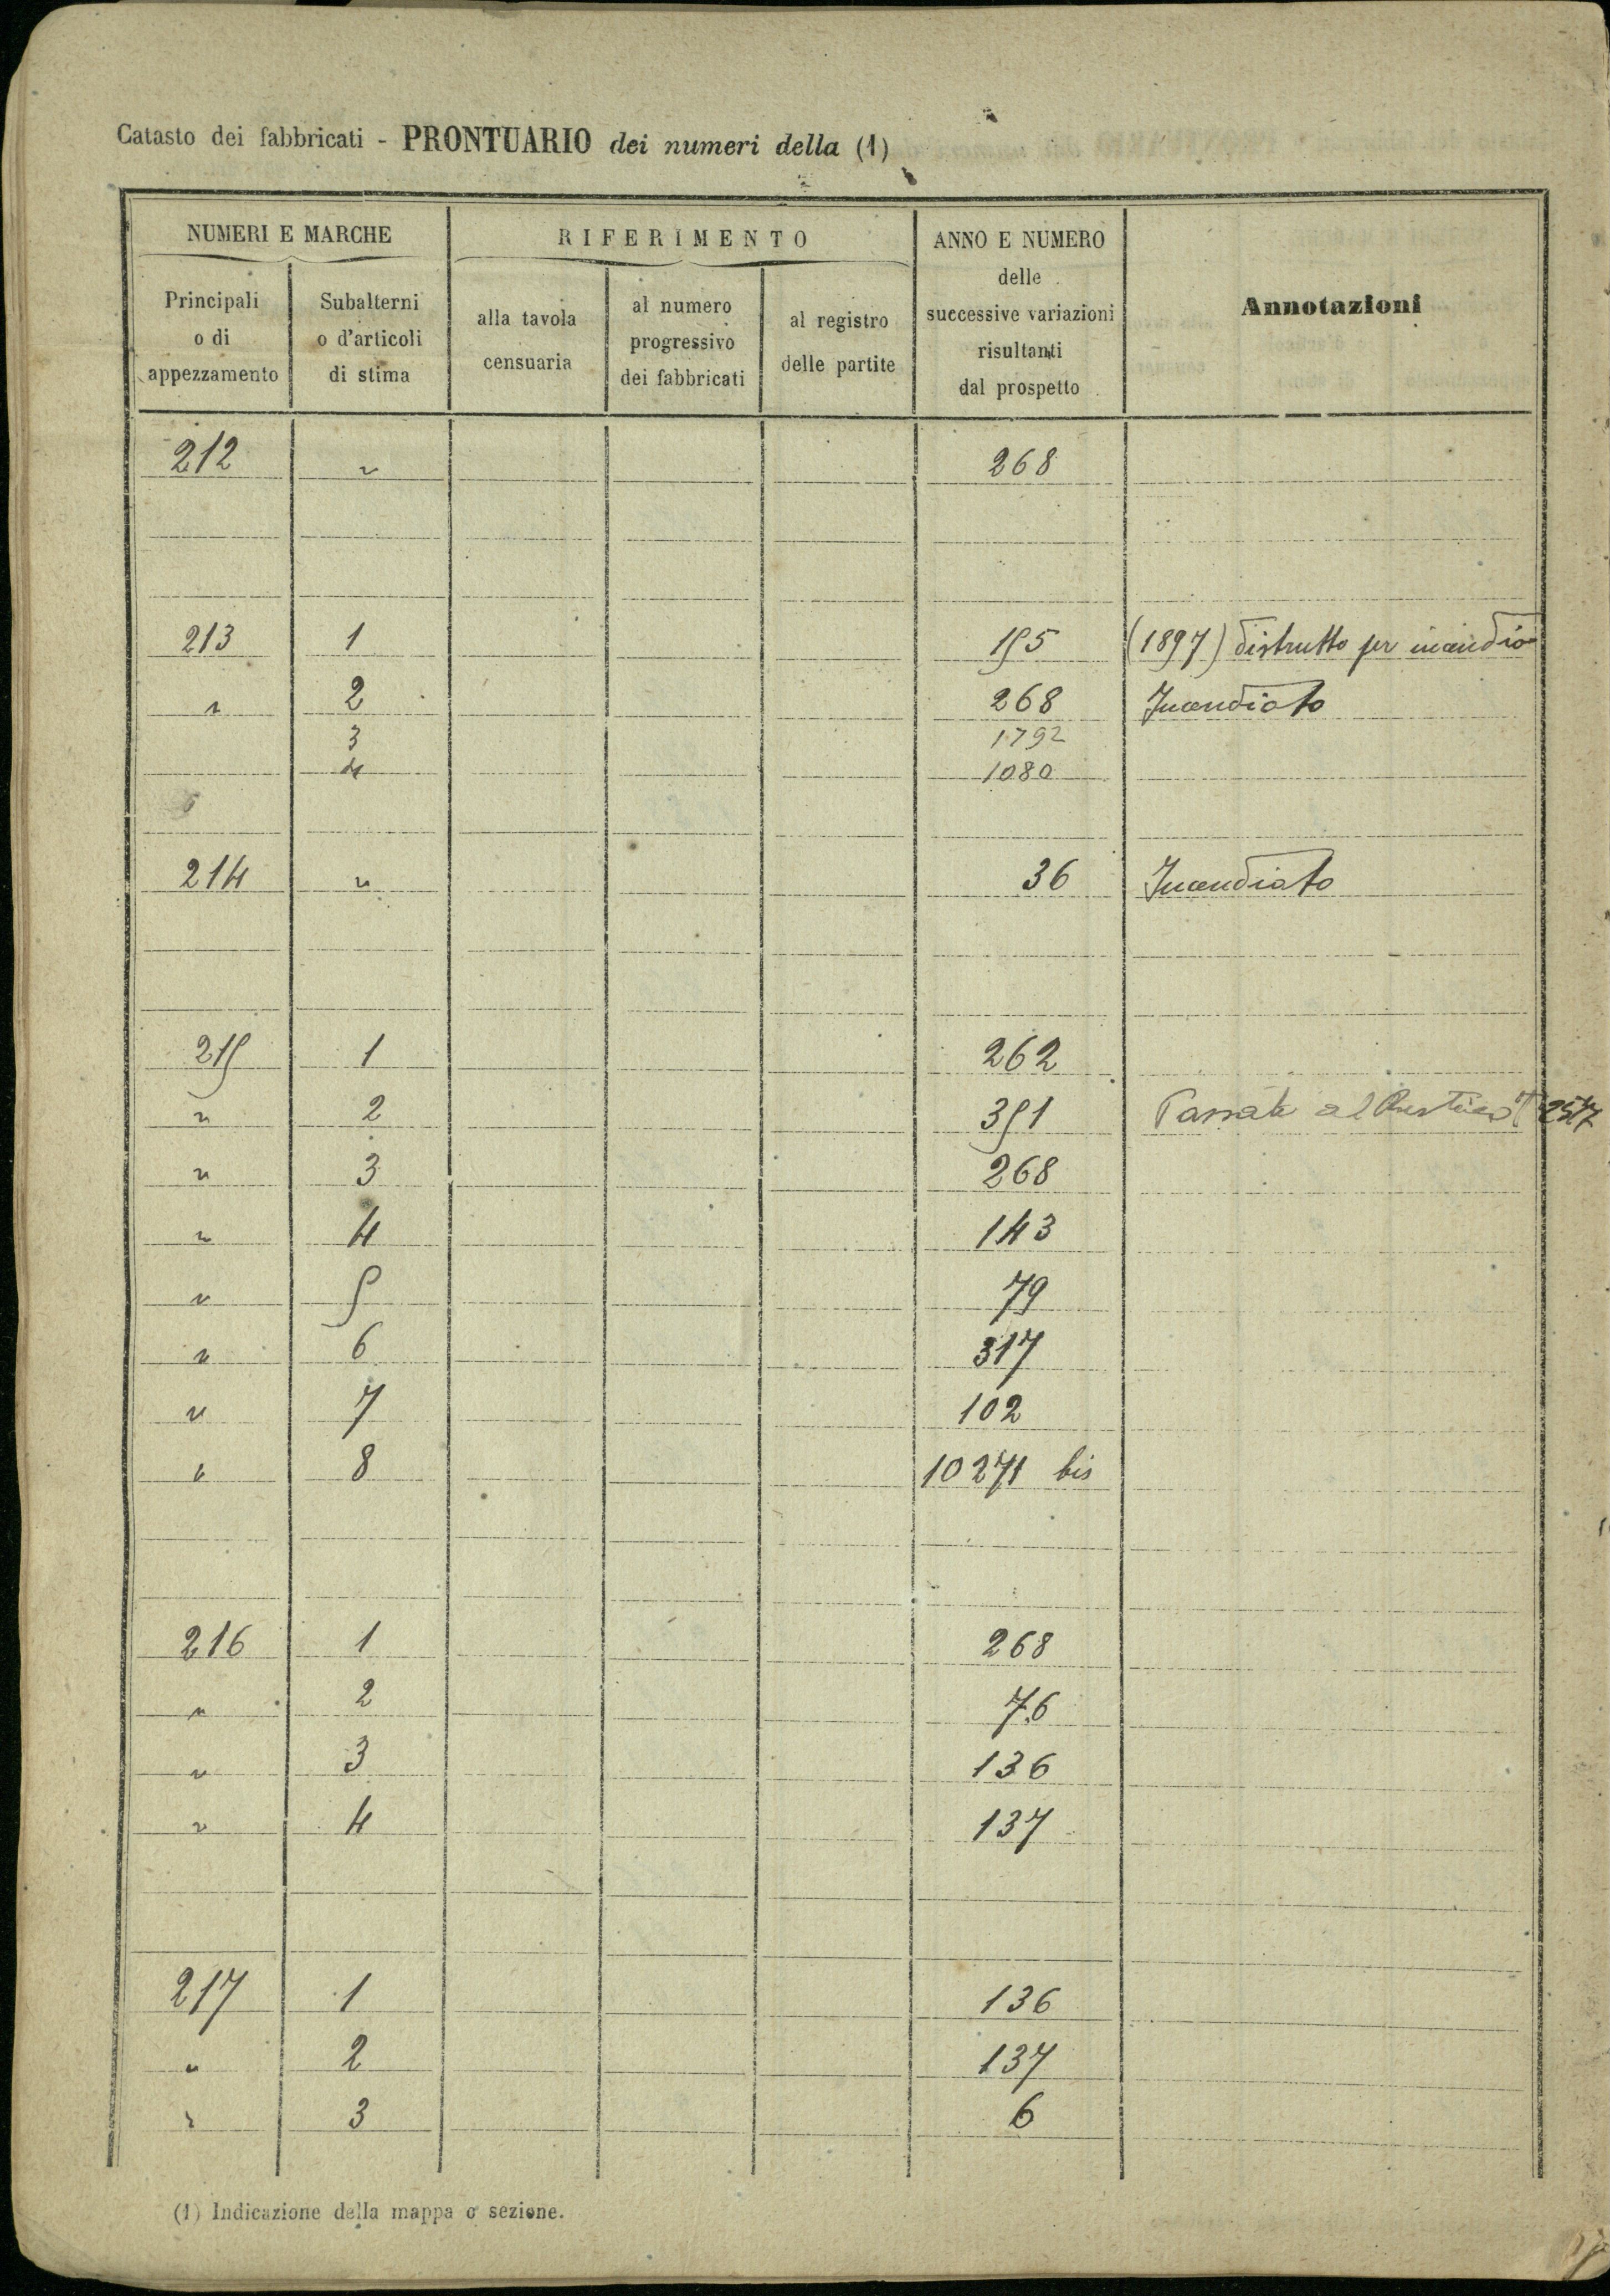 Catasto dei fabbricati - PRONTUARIO dei numeri della (1)
NUMERI E MARCHE
Principali
o di
appezzamento
Subalterni
o d'articoli
di stima
RIFERIMENTO
alla tavola
censuaria
al numero
progressivo
dei fabbricati
al registro
delle partite
ANNO E NUMERO
delle
successive variazioni
risultanti
dal prospetto
Annotazioni
212 " 268
213 1 155 (1897) distrutto per incendio
" 2 268 Incendiato
3 1792
4 1080
214 " 36 Incendiato
215 1 262
" 2 351 Passato al Rustico
" 3 268
" 4 143
" 5 79
" 6 317
" 7 102
" 8 10271 bis
216 1 268
" 2 76
" 3 136
" 4 137
217 1 136
" 2 137
" 3 6
(1) Indicazione della mappa o sezione.